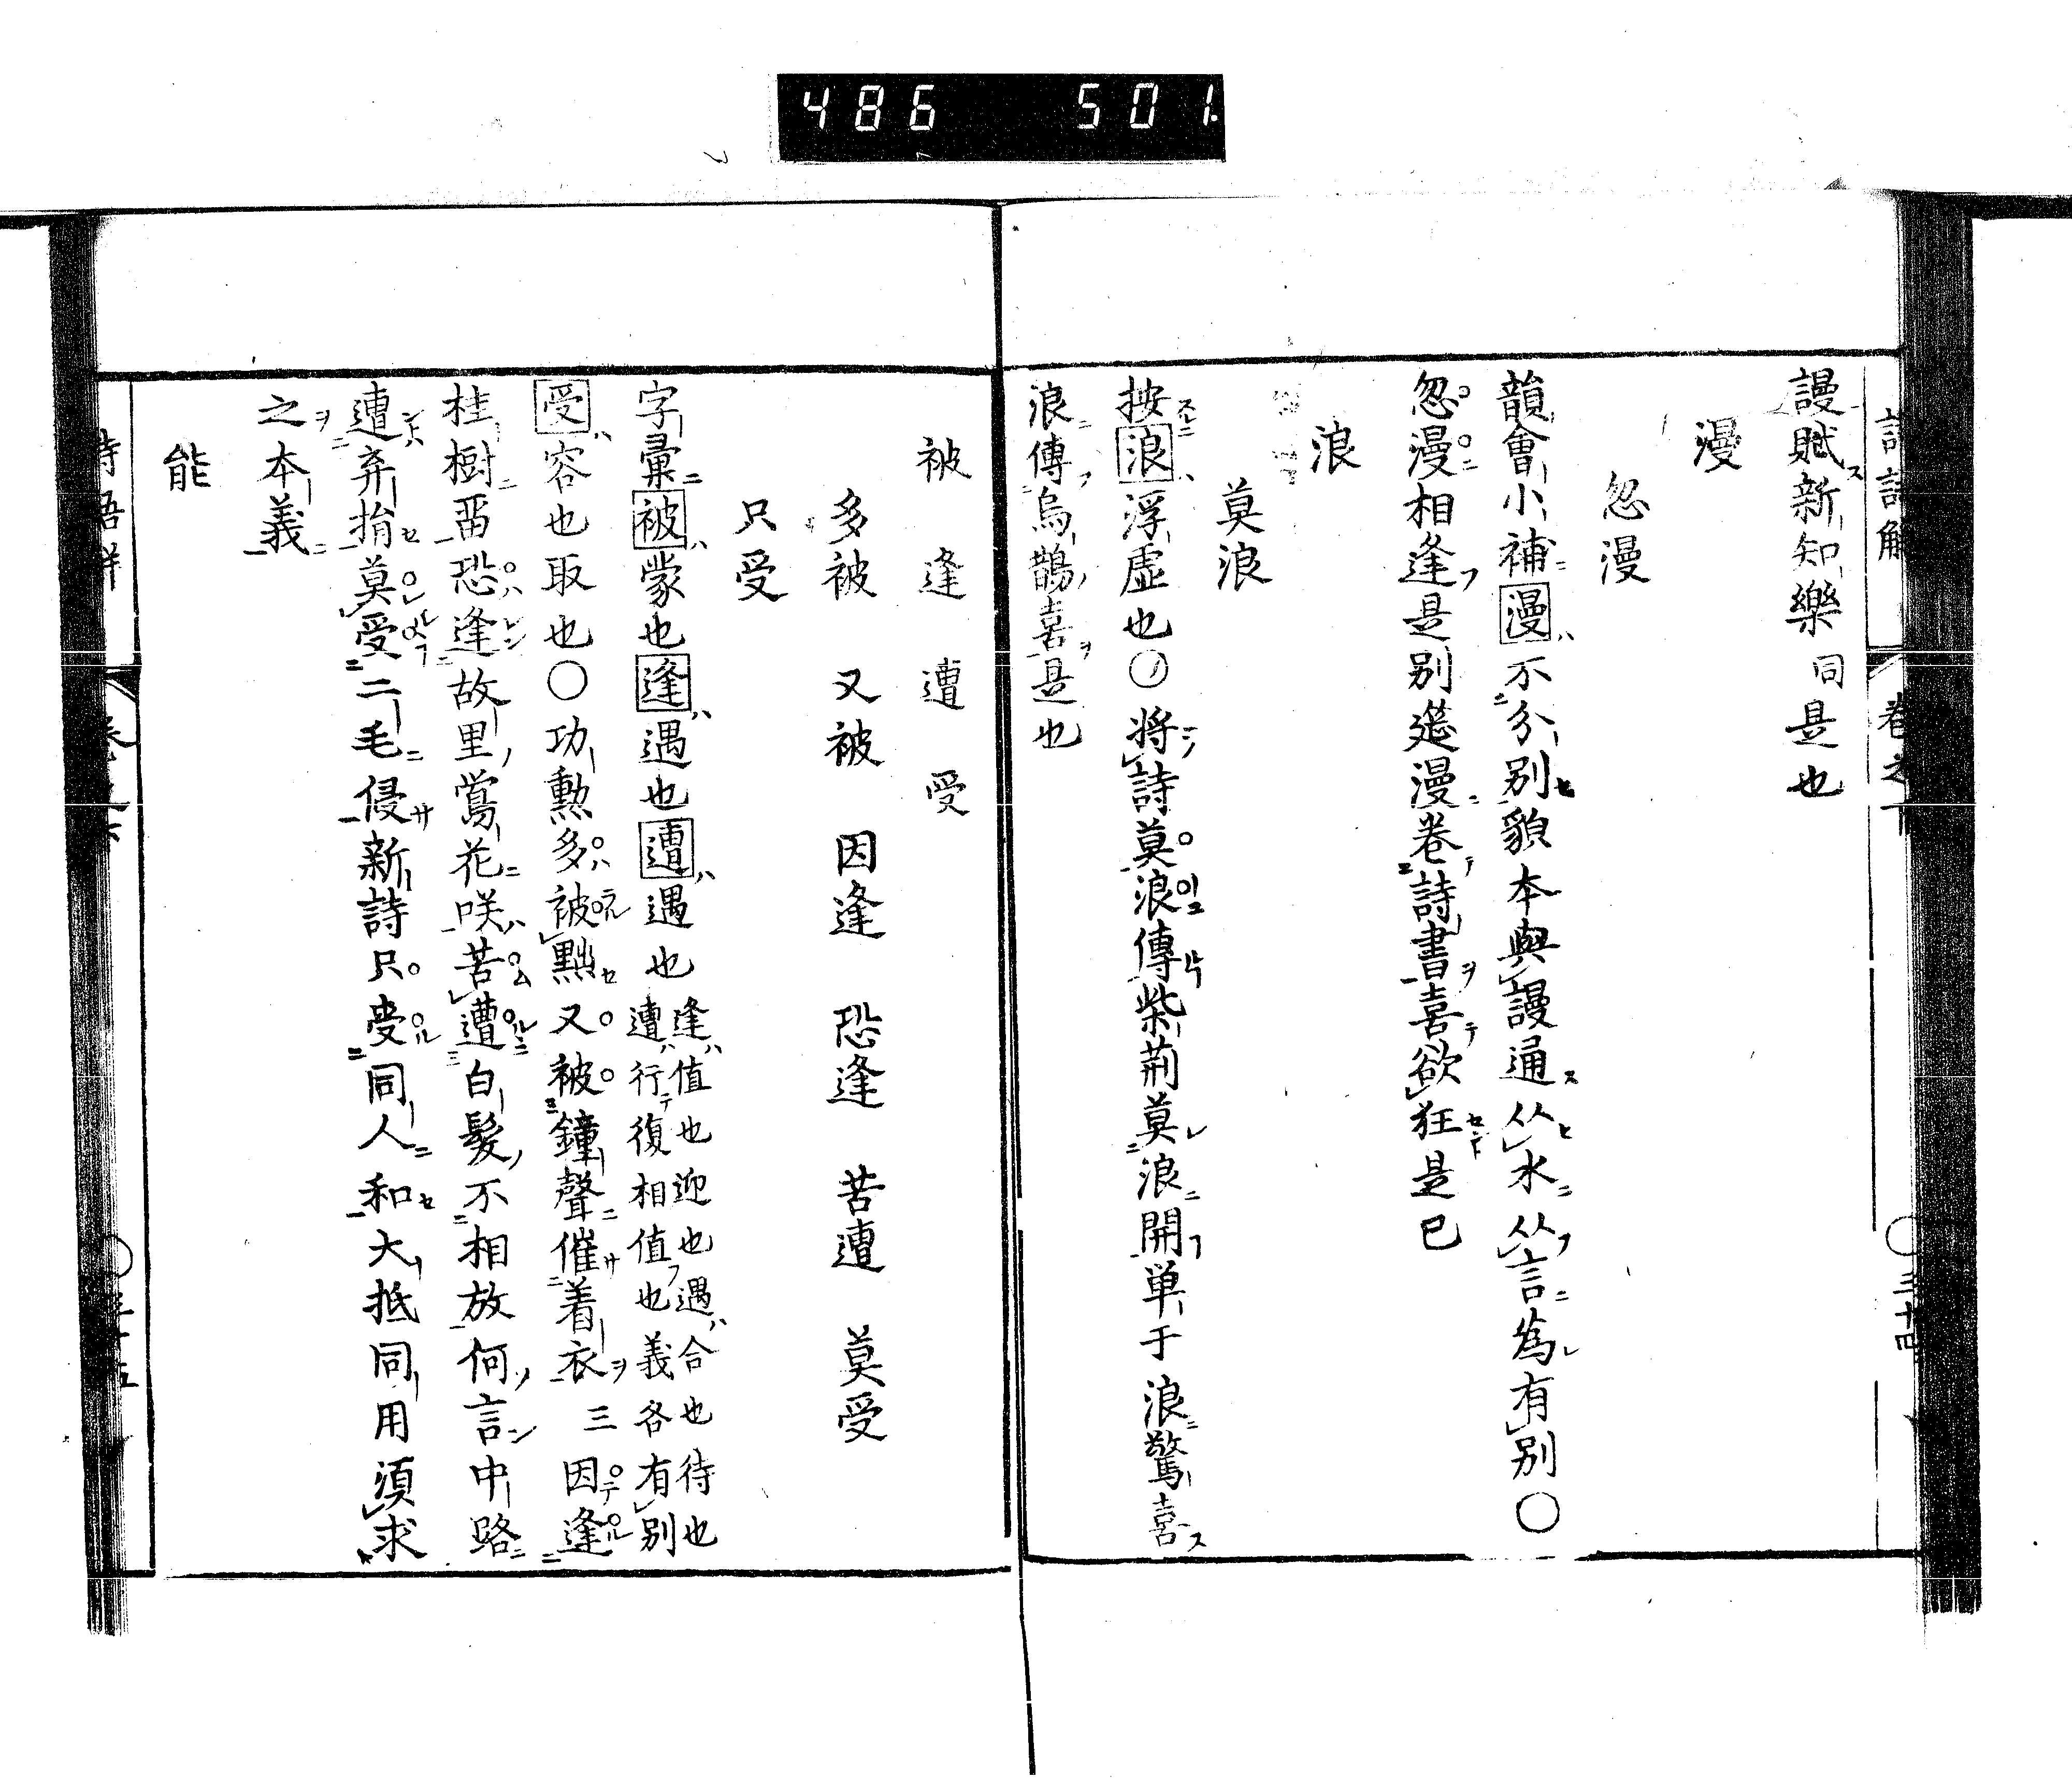 486 501
謾賦新知樂 同是也
漫
忽漫
韻會小補漫不分別貌本與謾通从水从言為有別〇
忽漫相逢是別筵漫卷詩書喜欲狂是已
浪
莫浪
按浪浮虛也〇將詩莫浪傳柴荊莫浪開単于浪驚喜
浪傳烏鵲喜是也
被 逢 遭 受
多被 又被 因逢 恐逢 苦遭 莫受
只受
字彙被蒙也逢遇也遭遇也逢值也迎也遇合也待也
遭行復相值也義各有別
受容也取也〇功勲多被黜又被鐘聲催着衣三因逢
桂樹畱恐逢故里鶯花咲苦遭白髪不相放何言中路
遭弃捐莫受二毛侵新詩只受同人和大抵同用須求
之本義
能